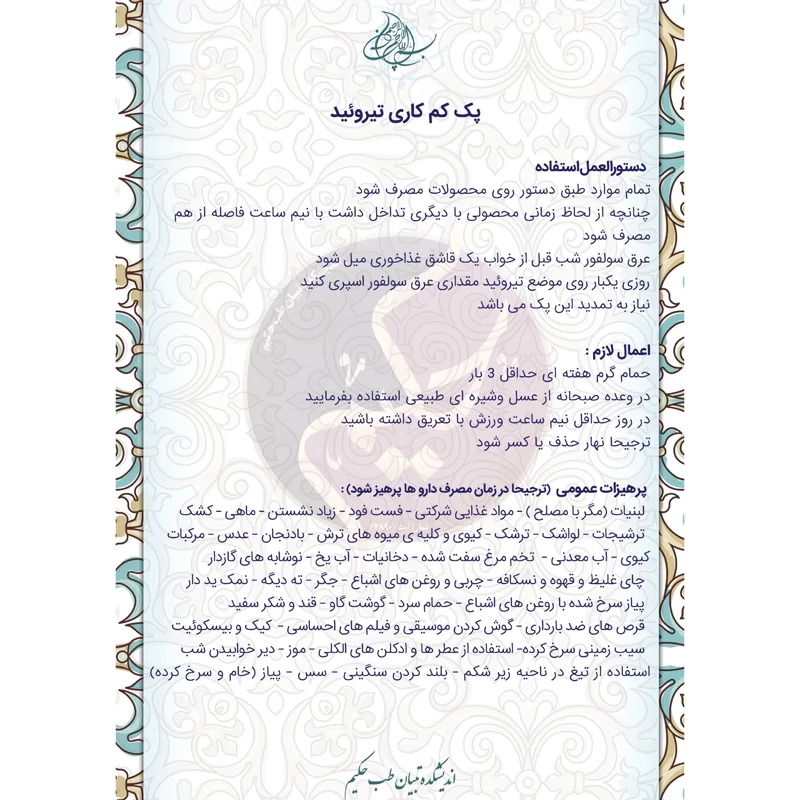 بسم الله الرحمن الرحیم
پک کم کاری تیروئید
دستورالعمل استفاده
تمام موارد طبق دستور روی محصولات مصرف شود
چنانچه از لحاظ زمانی محصولی با دیگری تداخل داشت با نیم ساعت فاصله از هم
مصرف شود
عرق سولفور شب قبل از خواب یک قاشق غذاخوری میل شود
روزی یکبار روی موضع تیروئید مقداری عرق سولفور اسپری کنید
نیاز به تمدید این پک می باشد
اعمال لازم :
حمام گرم هفته ای حداقل 3 بار
در وعده صبحانه از عسل وشیره ای طبیعی استفاده بفرمایید
در روز حداقل نیم ساعت ورزش با تعریق داشته باشید
ترجیحا نهار حذف یا کسر شود
پرهیزات عمومی (ترجیحا در زمان مصرف دارو ها پرهیز شود) :
لبنیات (مگر با مصلح ) - مواد غذایی شرکتی - فست فود - زیاد نشستن - ماهی - کشک
ترشیجات - لواشک - ترشک - کیوی و کلیه ی میوه های ترش - بادنجان - عدس - مرکبات
کیوی - آب معدنی - تخم مرغ سفت شده - دخانیات - آب یخ - نوشابه های گازدار
چای غلیظ و قهوه و نسکافه - چربی و روغن های اشباع - جگر - ته دیگه - نمک ید دار
پیاز سرخ شده با روغن های اشباع - حمام سرد - گوشت گاو - قند و شکر سفید
قرص های ضد بارداری - گوش کردن موسیقی و فیلم های احساسی - کیک و بیسکوئیت
سیب زمینی سرخ کرده- استفاده از عطر ها و ادکلن های الکلی - موز - دیر خوابیدن شب
استفاده از تیغ در ناحیه زیر شکم - بلند کردن سنگینی - سس - پیاز (خام و سرخ کرده)
اندیشکده تبیان طب حکیم